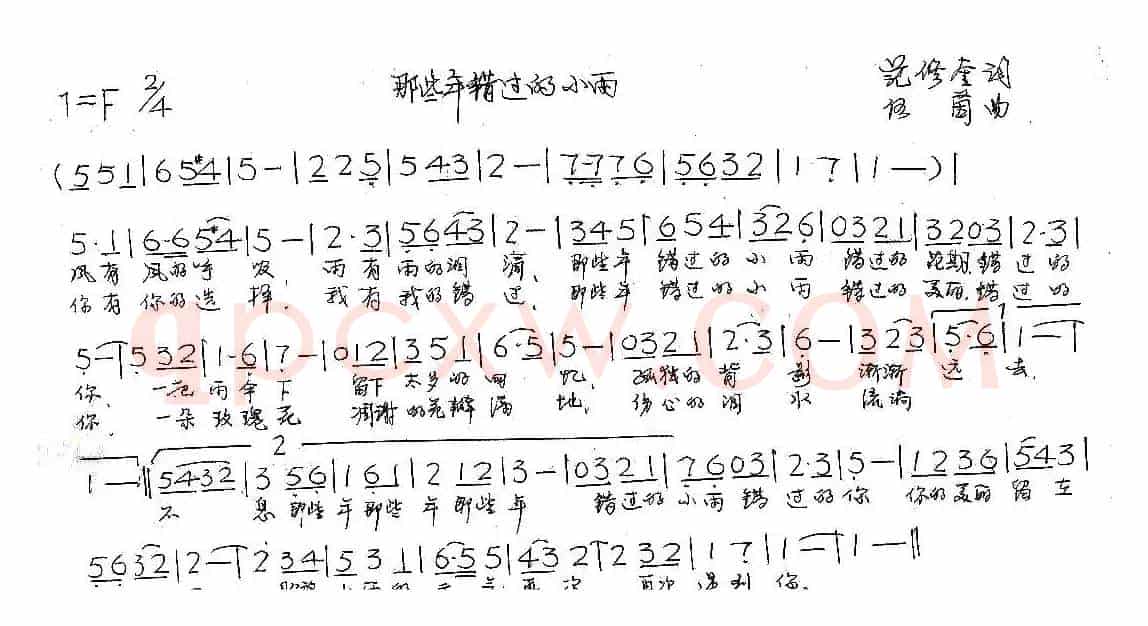 那些年错过的小雨
范修奎词
1=F 2/4
曲
(551|65#4|5-|225|543|2-|7·776|5632|17|1—)|
5·1|6·65#4|5-|2·3|5643|2-|345|654|326|0321|3203|2·3|
风有 风的呼 吸, 雨有雨的泪 滴, 那些年 错过的小 雨 错过的 花期,错 过的
你有 你的选 择, 我有我的错 过, 那些年 错过的小 雨 错过的 美丽,错 过的
5—|532|1·6|7-|012|351|6·5|5-|0321|2·3|6-|323|5·6|1—|
你, 一把雨伞下 留下 太多的回 忆, 孤独的背 影 渐渐 远 去.
你, 一朵玫瑰花 凋谢的花瓣满 地, 伤心的泪 水 流淌
2
1—‖5432|356|161|212|3-|0321|7603|2·3|5-|1236|543|
不 息 那些年那些年那些年 错过的小雨错过的你 你的美丽留在
5632|2—|234|531|6·55|432|232|17|1—|1—‖
再次 再次遇到 你.
qpcxw.COM